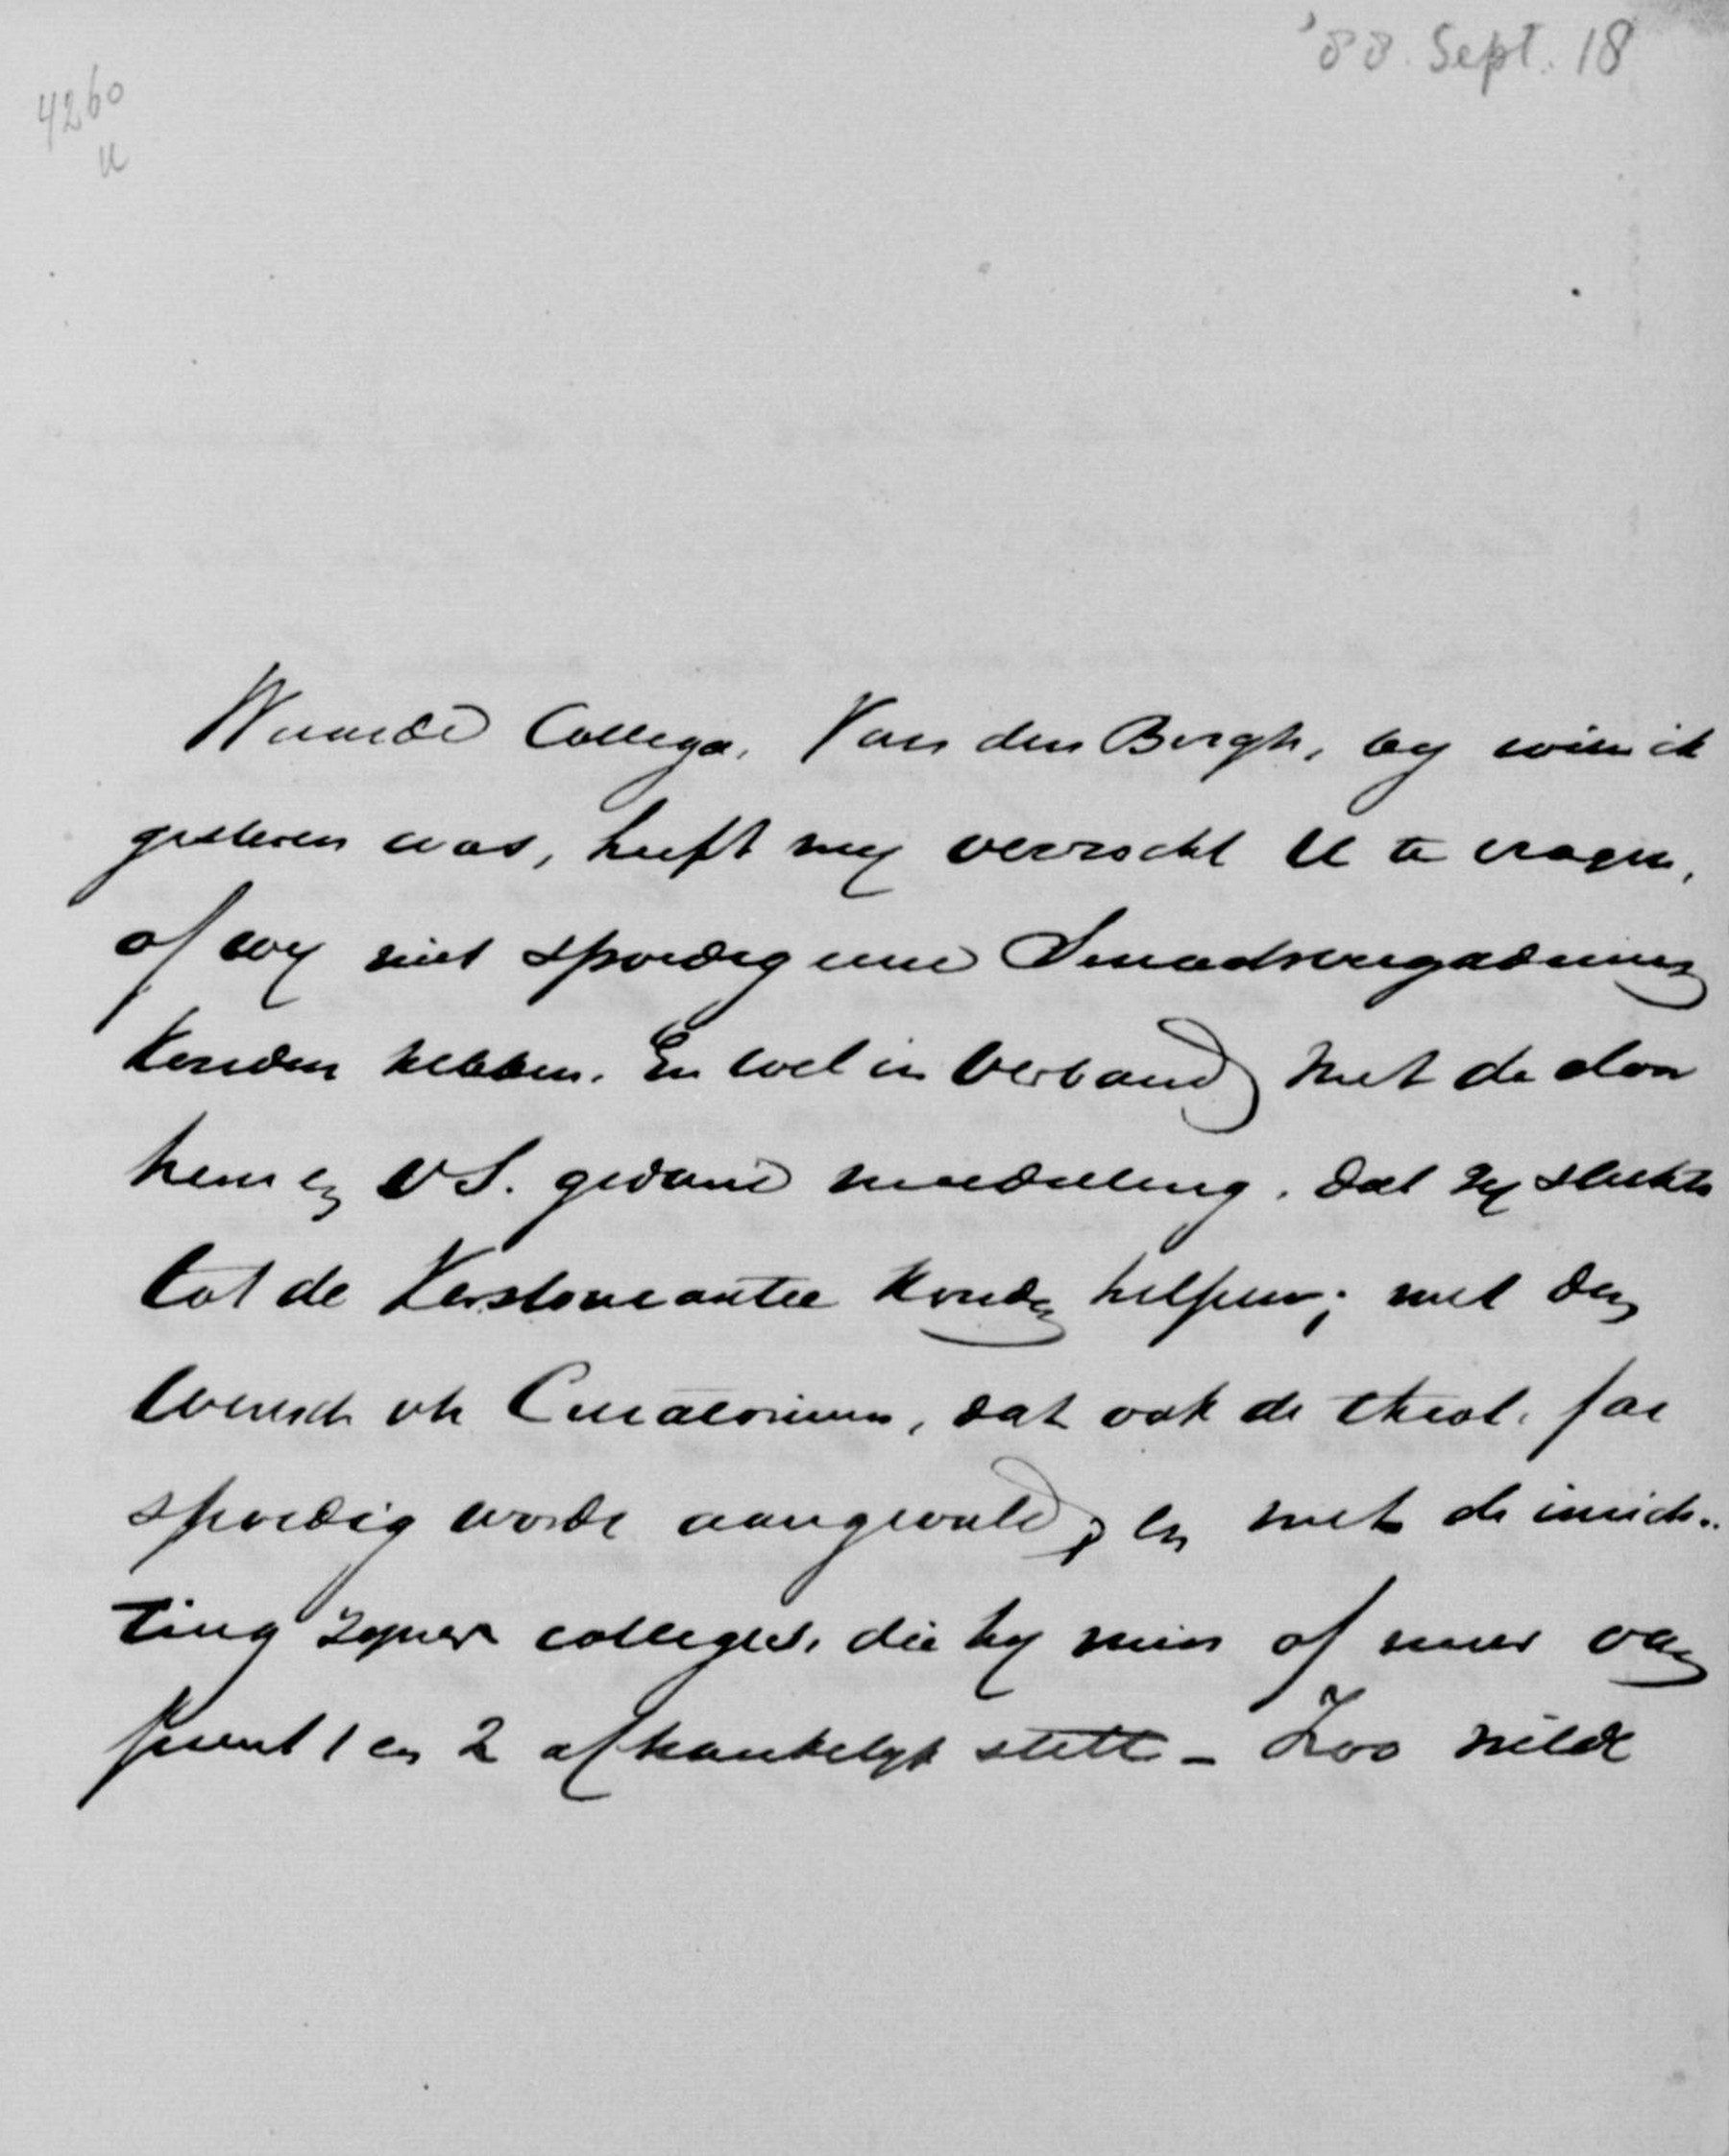 '88. Sept. 18
4260
u
Waarde Collega, Van den Bergh, by wien ik
gisteren was, heeft my verzocht U te vragen,
of wy niet spoedig eene Senaatsvergadering
konden hebben. En wel in verband met de door
hem en vS. gedane mededeeling, dat zy slechts
tot de Kerstvacantie konden helpen; met den
wensch vh Curatorium, dat ook de theol. fac
spoedig worde aangevuld, en met de inrich-
ting zyner colleges, die hy min of meer van
punt 1 en 2 afhankelyk stelt - Zoo